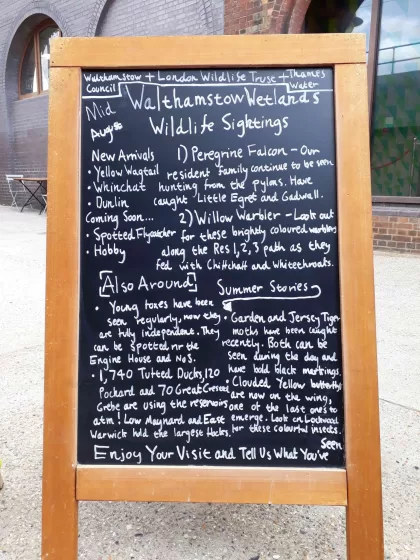 Walthamstow + London Wildlife Trust + Thames
Council Water
Mid
August
Walthamstow Wetlands
Wildlife Sightings
New Arrivals
• Yellow Wagtail
• Whinchat
• Dunlin
Coming Soon...
• Spotted Flycatcher
• Hobby
1) Peregrine Falcon - Our
resident family continue to be seen
hunting from the pylons. Have
caught Little Egret and Gadwall.
2) Willow Warbler - Look out
for these brightly coloured warblers
along the Res 1, 2, 3 path as they
fed with Chiffchaff and Whitethroats.
[Also Around]
• Young foxes have been
seen regularly, now they
are fully independent. They
can be spotted nr the
Engine House and No5.
• 1,740 Tufted Ducks, 120
Pochard and 70 Great Crested
Grebe are using the reservoirs
atm! Low Maynard and East
Warwick hold the largest flocks.
Summer Stories
• Garden and Jersey Tiger
moths have been caught
recently. Both can be
seen during the day and
have bold black markings.
• Clouded Yellow butterflys
are now on the wing,
one of the last ones to
emerge. Look on Lockwood
for these colourful insects.
Seen
Enjoy Your Visit and Tell Us What You've